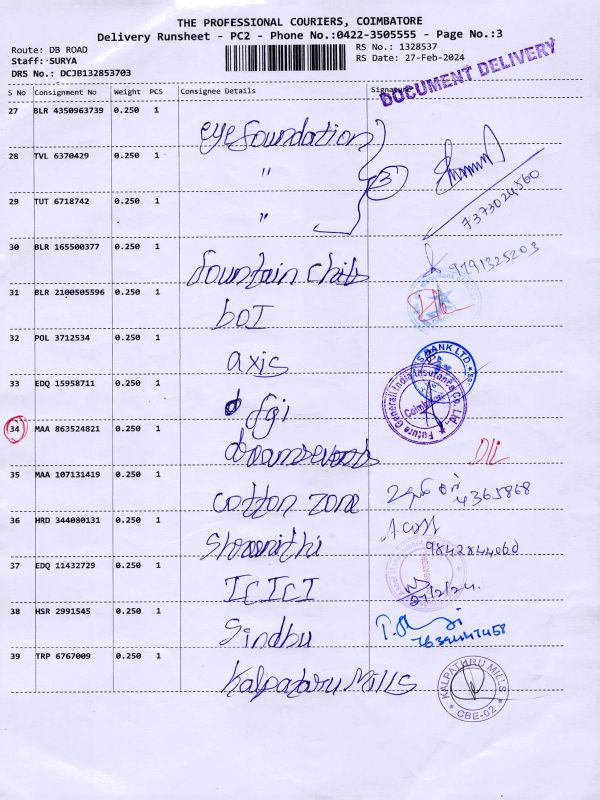 THE PROFESSIONAL COURIERS, COIMBATORE
Delivery Runsheet - PC2 - Phone No.:0422-3505555 - Page No.:3
Route: DB ROAD
Staff: SURYA
DRS No.: DCJB132853703
RS No.: 1328537
RS Date: 27-Feb-2024
DOCUMENT DELIVERY
S No Consignment No Weight PCS Consignee Details Signature
27 BLR 4350963739 0.250 1 eye foundation
28 TVL 6370429 0.250 1 "
3
29 TUT 6718742 0.250 1 "
7373024560
30 BLR 165500377 0.250 1 fountain
9791325203
31 BLR 2100505596 0.250 1 BOI
32 POL 3712534 0.250 1 axis
BANK LTD
33 EDQ 15958711 0.250 1 fgi
Future Generali India Insurance Co. Ltd.
Coimbatore
34 MAA 863524821 0.250 1
35 MAA 107131419 0.250 1 cotton zone
4365868
36 HRD 344080131 0.250 1
9842844060
37 EDQ 11432729 0.250 1 ICICI
27/2/24.
38 HSR 2991545 0.250 1 Sindhu
39 TRP 6767009 0.250 1 Kalpatharu Mills
KALPATHRU MILLS
CBE-02